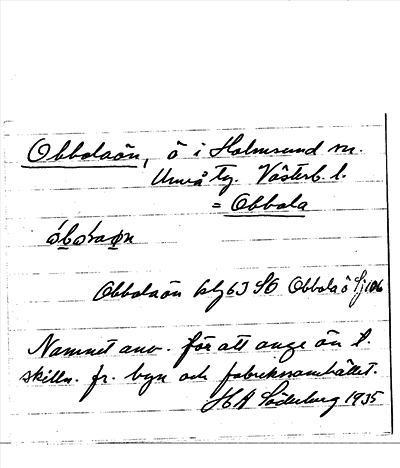 Obbolaön, ö i Holmsund sn.
Umeå tg. Västerb. l.
= Obbola
Obbolaön blg 63 SO Obbola ö Sj 106
Namnet anv. för att ange ön t.
skilln. fr. byn och fabrikssamhället.
H A Söderberg 1935